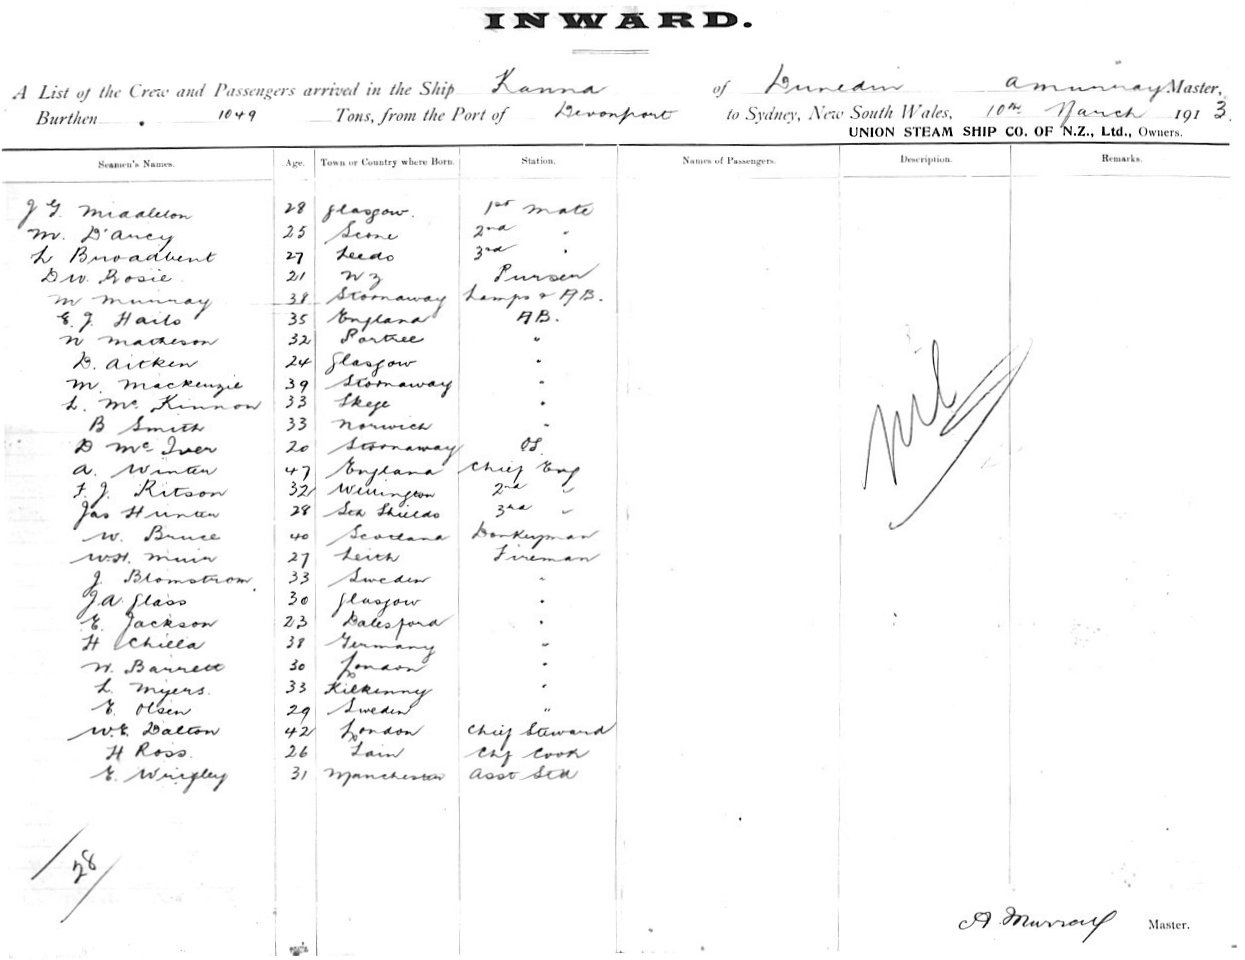 INWARD.
A List of the Crew and Passengers arrived in the Ship Kanna of Dunedin A Murray Master,
Burthen 1049 Tons, from the Port of Devonport to Sydney, New South Wales, 10th March 1913.
UNION STEAM SHIP CO. OF N.Z., Ltd., Owners.
Seamen's Names. Age. Town or Country where Born. Station. Names of Passengers. Description. Remarks.
J G. Middleton 28 Glasgow. 1st Mate
M. D'Arcy 25 Scone 2nd "
L Broadbent 27 Leeds 3rd "
D W. Rosie 21 N Z Purser
M Murray 38 Stornaway Lamps & AB.
E. J. Hails 35 England AB.
N Matheson 32 Portree "
D. Aitken 24 Glasgow "
M. Mackenzie 39 Stornaway "
L. McKinnon 33 Skye "
B Smith 33 Norwich "
D McIver 20 Stornaway OS.
A. Winter 47 England Chief Eng
F. J. Kitson 32 Willington 2nd "
Jas Hunter 28 Sth Shields 3rd "
W. Bruce 40 Scotland Donkeyman
W.H. Muir 27 Leith Fireman
J. Blomstrom 33 Sweden "
J A Glass 30 Glasgow "
E. Jackson 23 Dalesford "
H Chilla 38 Germany "
W. Barrett 30 London "
L. Myers. 33 Kilkenny "
E. Olsen 29 Sweden "
W.E. Dalton 42 London Chief Steward
H Ross. 26 Tain Chf Cook
E. Wrigley 31 Manchester Asst Std
nil
28
A. Murray Master.